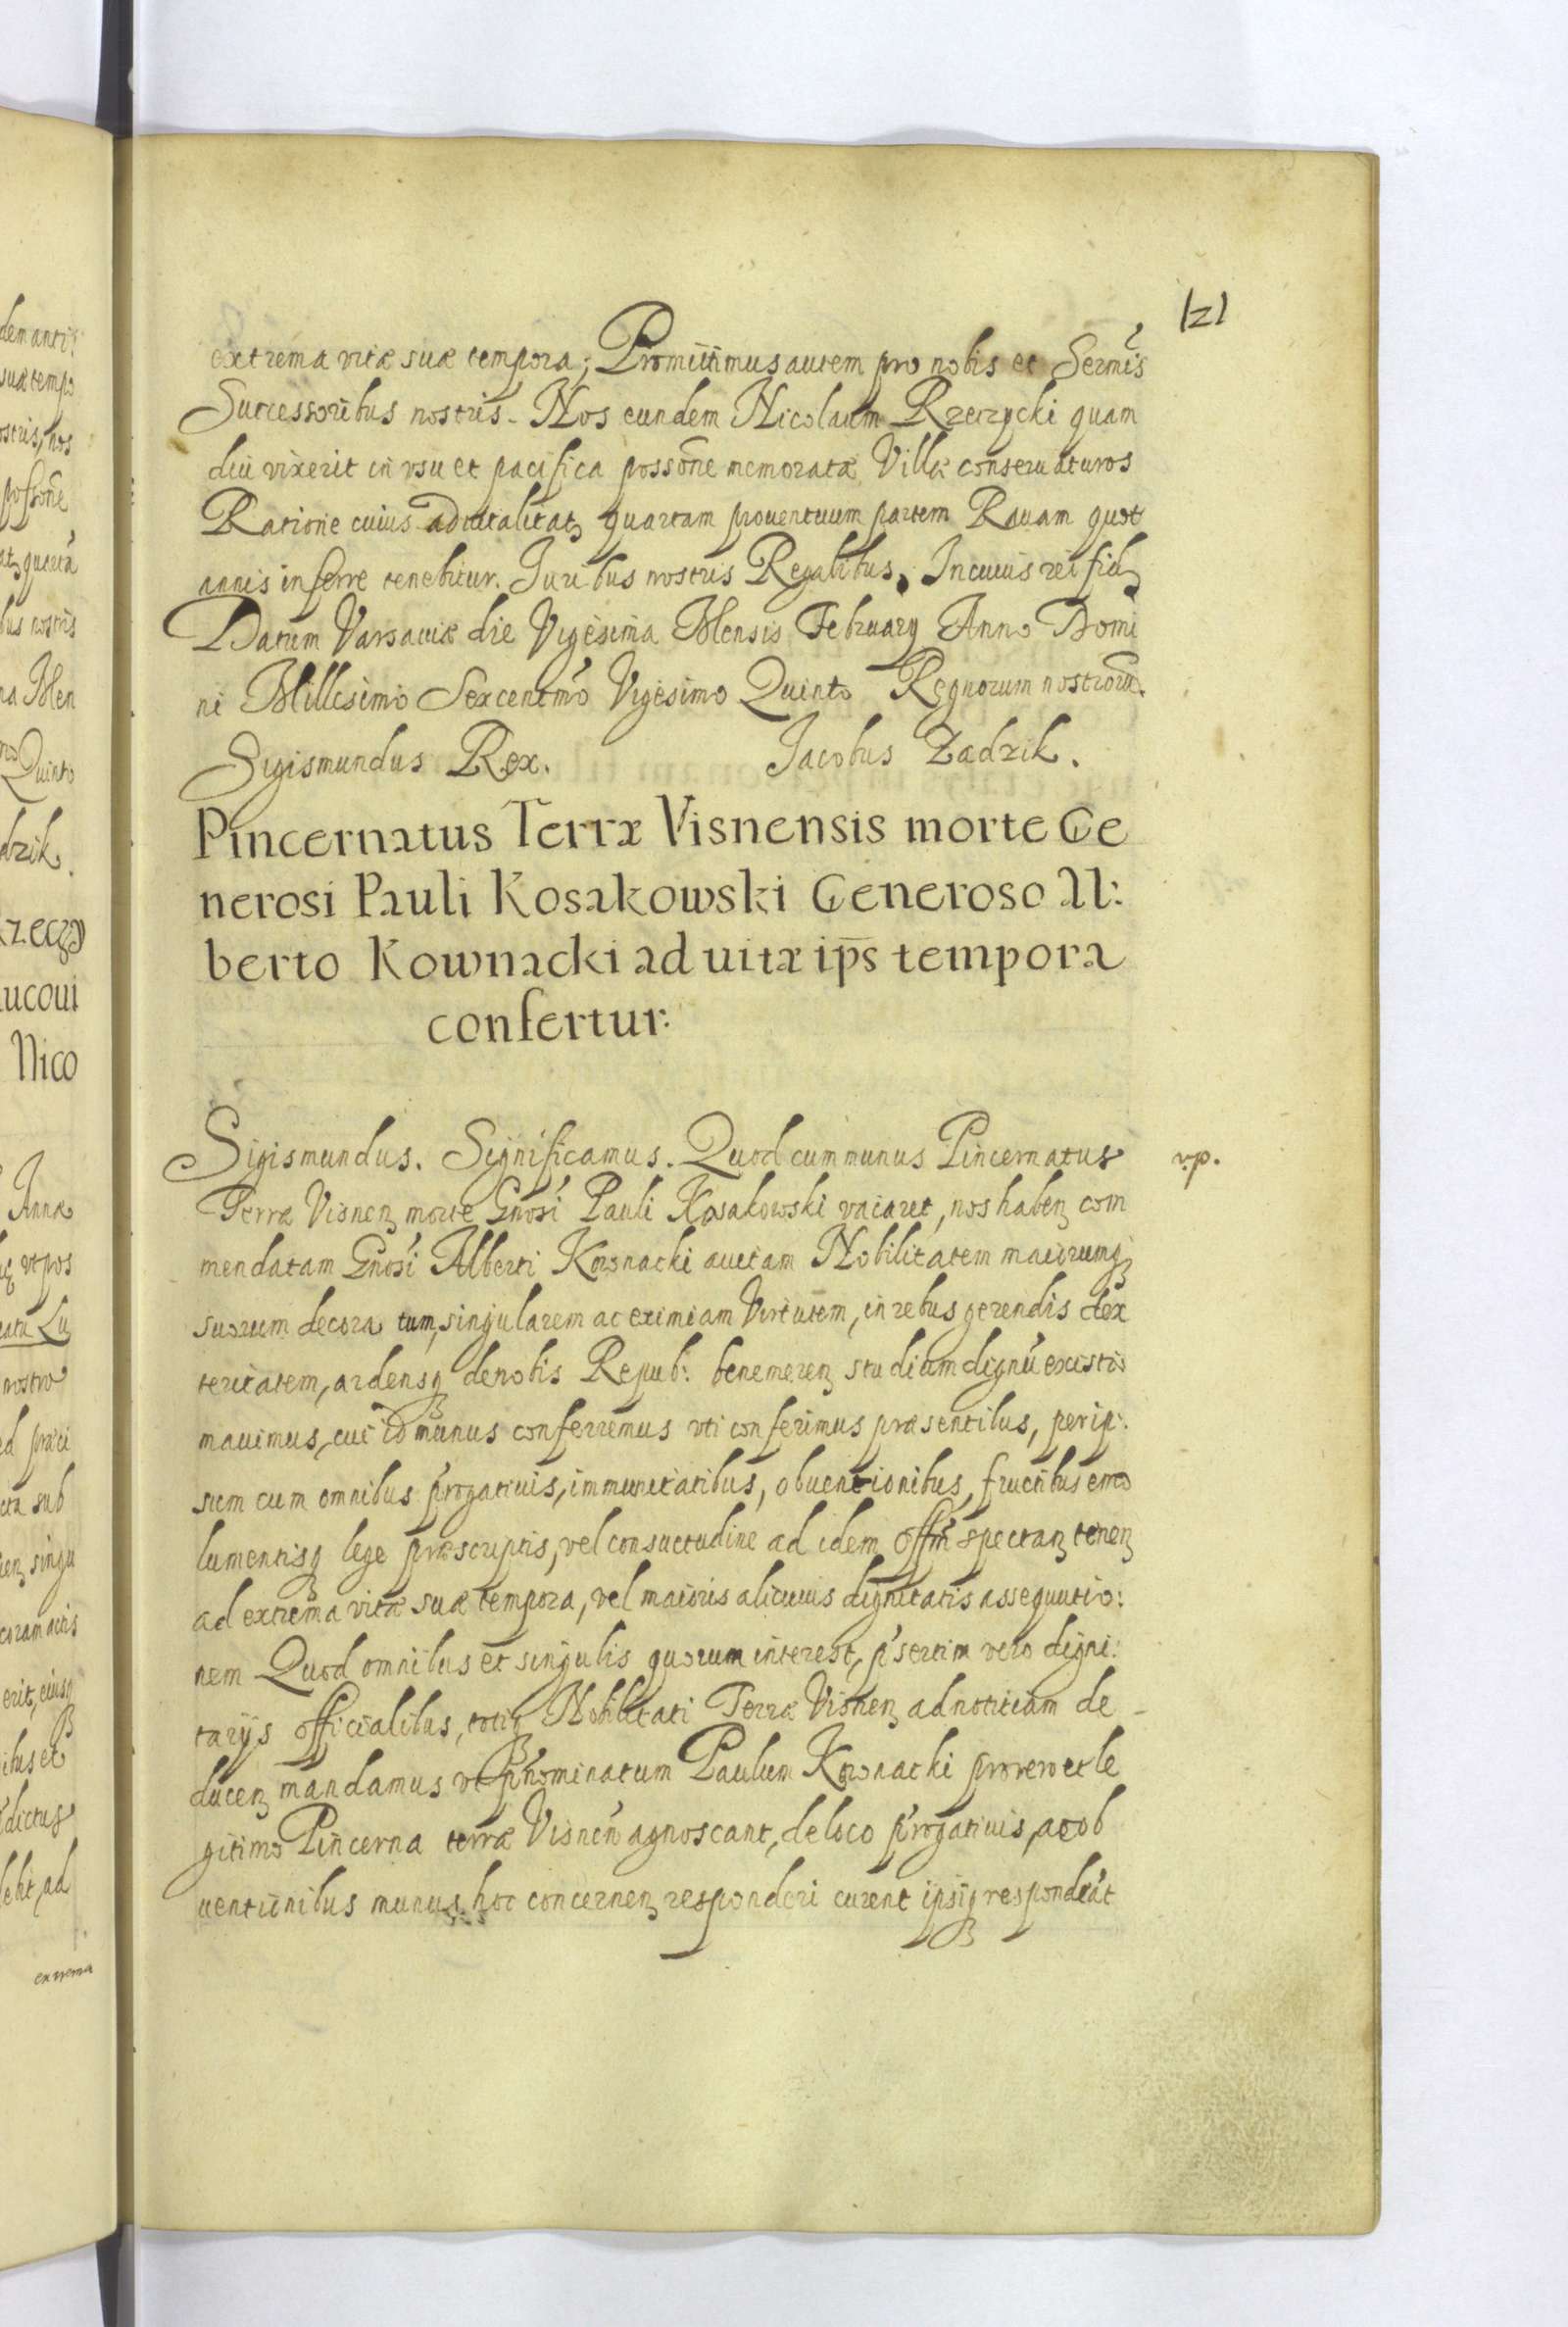 121
extrema vitæ suæ tempora; Promittimus autem pro nobis et Sermis
Successoribus nostris. Nos eundem Nicolaum Rzeczycki quam
diu vixerit in vsu et pacifica possone memoratæ Villæ conseruaturos
Ratione cuius aduitalitatz quartam prouentuum partem Rauam quot
annis inferre tenebitur. Juribus nostris Regalibus. In cuius rei fidz
Datum Varsauiæ die Vigesima Mensis February Anno Domi
ni Millesimo Sexcentmo Vigesimo Quinto Regnorum nostroru.
Sigismundus Rex. Jacobus Zadzik.
Pincernatus Terræ Visnensis morte Ge
nerosi Pauli Kosakowski Generoso Al:
berto Kownacki ad uitæ ips tempora
confertur:
Sigismundus. Significamus. Quod cum munus Pincernatus
v.p.
Terræ Visnenz morte Gnosi Pauli Kosakowski vacaret, nos habenz com
mendatam Gnosi Alberti Kownacki auitam Nobilitatem maiorumqz
suorum decora tum, singularem ac eximiam Virtutem, in rebus gerendis dex
teritatem, ardensqz de nobis Repub: benemerenz studium dignu existi
mauimus, cui id munus conferremus vti conferimus præsentibus, per ip:
sum cum omnibus progatiuis, immunitatibus, obuentionibus, fructibus emo
lumentisqz lege præscriptis, vel consuetudine ad idem offm spectanz tenenz
ad extrema vitæ suæ tempora, vel maioris alicuius dignitatis assequutio:
nem Quod omnibus et singulis quorum interest, psertim vero digni:
tarijs officialibus, totiqz Nobilitati Terræ Visnenz ad notitiam de
ducenz mandamus vt pnominatum Paulum Kownacki pro vero et le
gitimo Pincerna terræ Visnen agnoscant, de loco progatiuis, ac ob
uentionibus munus hoc concernenz responderi curent ipsiqz respondeat